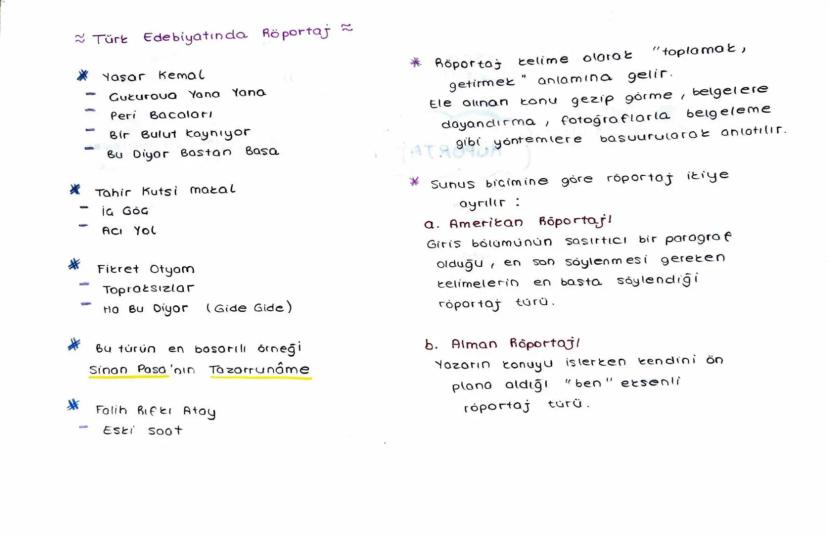 ≈ Türk Edebiyatında Röportaj ≈
* Yaşar Kemal
- Çukurova Yana Yana
- Peri Bacaları
- Bir Bulut Kaynıyor
- Bu Diyar Baştan Başa
* Tahir Kutsi Makal
- İç Göç
- Acı Yol
* Fikret Otyam
- Topraksızlar
- Ha Bu Diyar (Gide Gide)
* Bu türün en başarılı örneği
Sinan Paşa'nın Tazarrunâme
* Falih Rıfkı Atay
- Eski Saat
* Röportaj kelime olarak "toplamak,
getirmek" anlamına gelir.
Ele alınan konu gezip görme, belgelere
dayandırma, fotoğraflarla belgeleme
gibi yöntemlere başvurularak anlatılır.
* Sunuş biçimine göre röportaj ikiye
ayrılır :
a. Amerikan Röportajı
Giriş bölümünün şaşırtıcı bir paragraf
olduğu, en son söylenmesi gereken
kelimelerin en başta söylendiği
röportaj türü.
b. Alman Röportajı
Yazarın konuyu işlerken kendini ön
plana aldığı "ben" eksenli
röportaj türü.